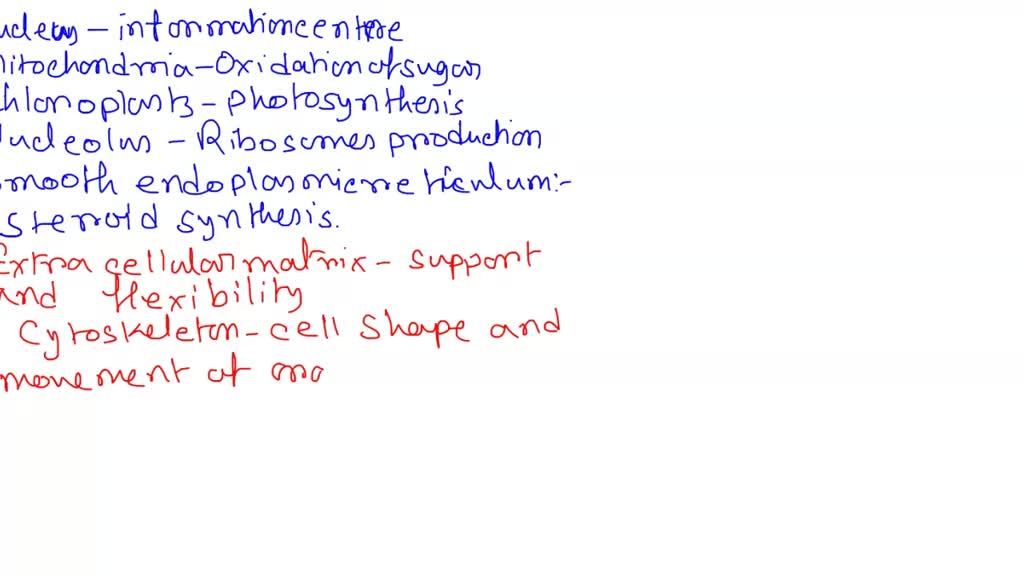 ucleus - information centre
itochondria - Oxidation of sugar
hloroplasts - photosynthesis
ucleolus - Ribosomes production
smooth endoplasmic reticulum:-
steroid synthesis.
Extra cellular matrix - support
and flexibility
Cytoskeleton - cell shape and
movement of mo